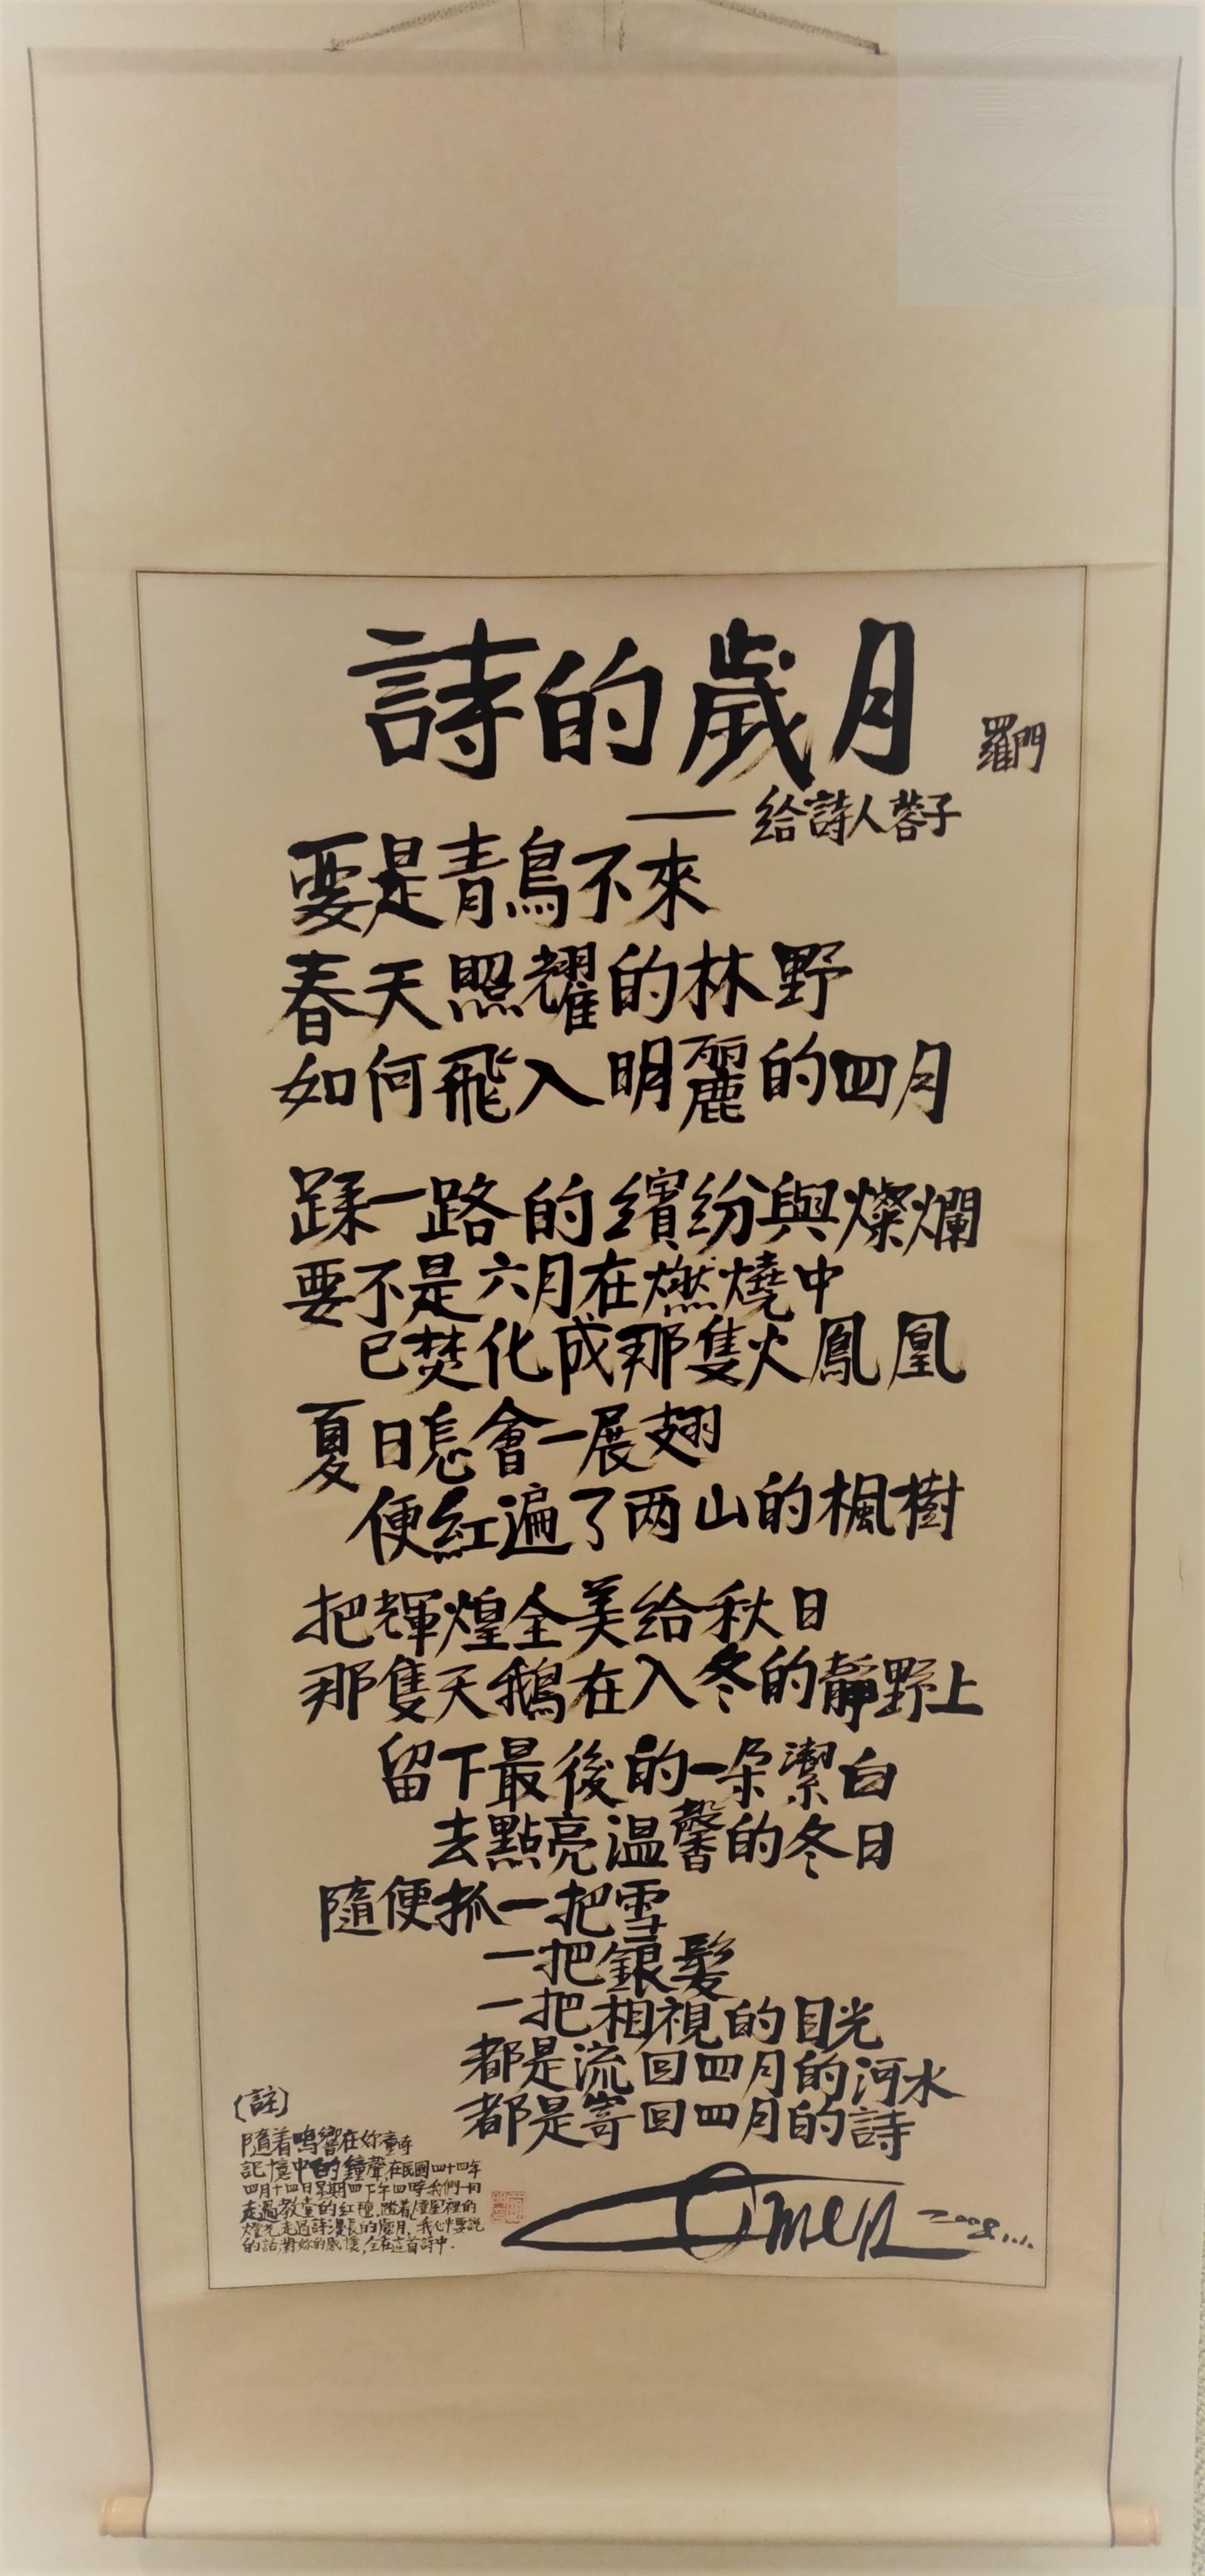 詩的歲月
羅門
—— 給詩人蓉子
要是青鳥不來
春天照耀的林野
如何飛入明麗的四月
踩一路的繽紛與燦爛
要不是六月在燃燒中
已焚化成那隻火鳳凰
夏日怎會一展翅
便紅遍了两山的楓樹
把輝煌全美給秋日
那隻天鵝在入冬的靜野上
留下最後的一朵潔白
去點亮温馨的冬日
隨便抓一把雪
一把銀髮
一把相視的目光
都是流回四月的河水
都是寄回四月的詩
(註)
隨着鳴響在妳童年
記憶中的鐘聲,在民國四十四年
四月十四日星期四下午四時我們一同
走過教堂的紅毯,踏着燈屋裡的
燈光走過詩漫長的歲月,我心中要說
的話,對妳的感懷,全在這首詩中.
Omen 2008....